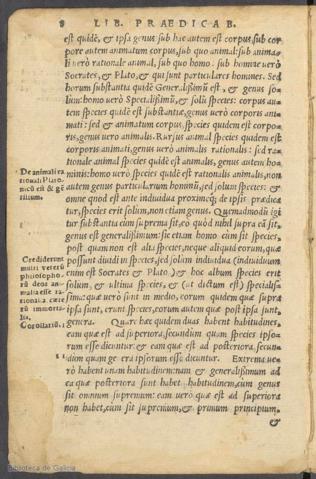 8 LIB. PRAEDICAB.
est quidē, & ipsa genus: sub hac autem est corpus, sub cor
pore autem animatum corpus, sub quo animal: sub anima-
li verò rationale animal, sub quo homo: sub homine verò
Socrates, & Plato, & qui sunt particulares homines. Sed
horum substantia quidē Generalissimū est, & genus so-
lùm: homo verò Specialissimū, & solū species: corpus au-
tem species quidē est substantiæ, genus verò corporis ani-
mati: sed & animatum corpus, species quidem est corpo-
ris, genus verò animalis. Rursus animal species quidem est
corporis animati, genus verò animalis rationalis: sed ra-
tionale animal species quidē est animalis, genus autem ho-
minis: homo verò species quidē est rationalis animalis, non
autem genus particularium hominū, sed solum species: &
omne quod est ante individua proximè, de ipsis prædica
tur, species erit solùm, non etiam genus. Quemadmodū igi
tur substantia cùm suprema sit, eò quòd nihil supra eā sit,
genus est generalissimum: sic etiam homo cùm sit species,
post quam non est alia species, neque aliquid eorum, quæ
possunt dividi in species, sed solùm individua (individuum
enim est Socrates & Plato,) & hoc album species erit
solùm, & ultima species, & (ut dictum est) specialissi
ma: quæ verò sunt in medio, eorum quidem quæ supra
ipsa sunt, erunt species, eorum autem quæ post ipsa sunt,
genera. Quare hæc quidem duas habent habitudines,
eam quæ est ad superiora, secundùm quam species ipso-
rum esse dicuntur: & eam quæ est ad posteriora, secun-
dùm quam genera ipsorum esse dicuntur. Extrema ve-
rò habent unam habitudinem: nam & generalissimum ad
ea quæ posteriora sunt habet habitudinem, cùm genus
sit omnium supremum: eam verò quæ est ad superiora
non habet, cùm sit supremum, & primum principium,
&
De animali ra
tionali Plato-
nicū est & gē
tilium.
Crediderunt
multi veterū
philosopho-
rū deos ani-
malia esse ra-
tionalia cæte
rū immorta-
lia.
Corollariū.
Biblioteca de Galicia